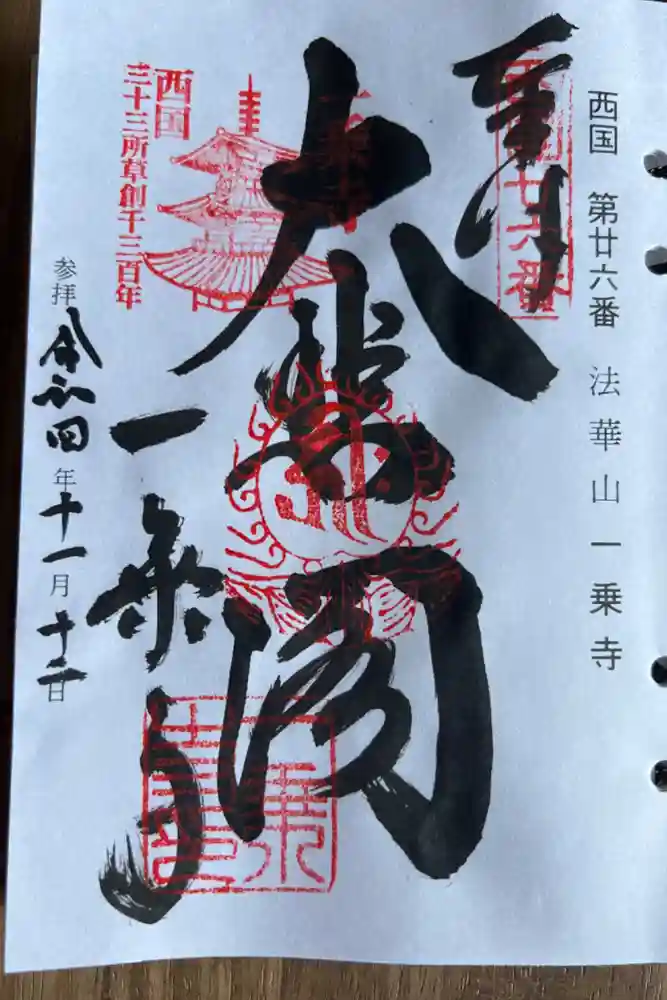 西国 第廿六番 法華山一乗寺
奉拝
西国廿六番
大悲閣
一乗寺
西国
三十三所草創千三百年
参拝 令和四年十一月十二日